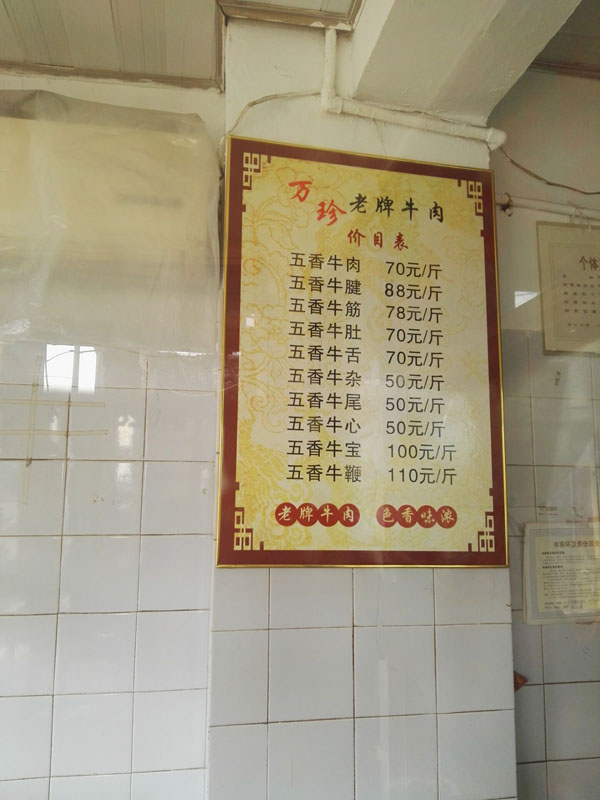 万珍老牌牛肉
价目表
五香牛肉 70元/斤
五香牛腱 88元/斤
五香牛筋 78元/斤
五香牛肚 70元/斤
五香牛舌 70元/斤
五香牛杂 50元/斤
五香牛尾 50元/斤
五香牛心 50元/斤
五香牛宝 100元/斤
五香牛鞭 110元/斤
老牌牛肉 色香味浓
个体